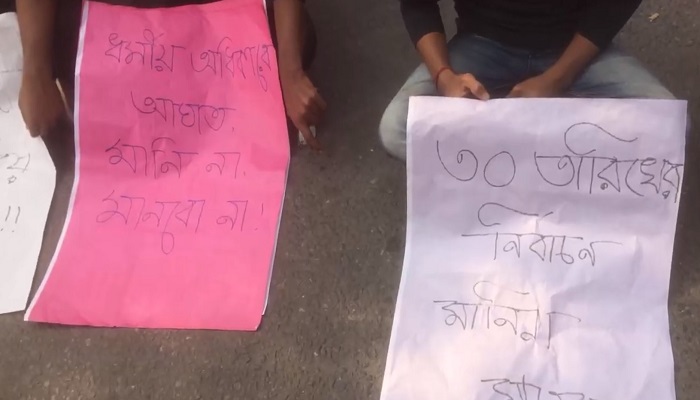 ধর্মীয় অধিকারে
আঘাত
মানি না,
মানবো না!
৩০ তারিখের
নির্বাচন
মানিনা
!!